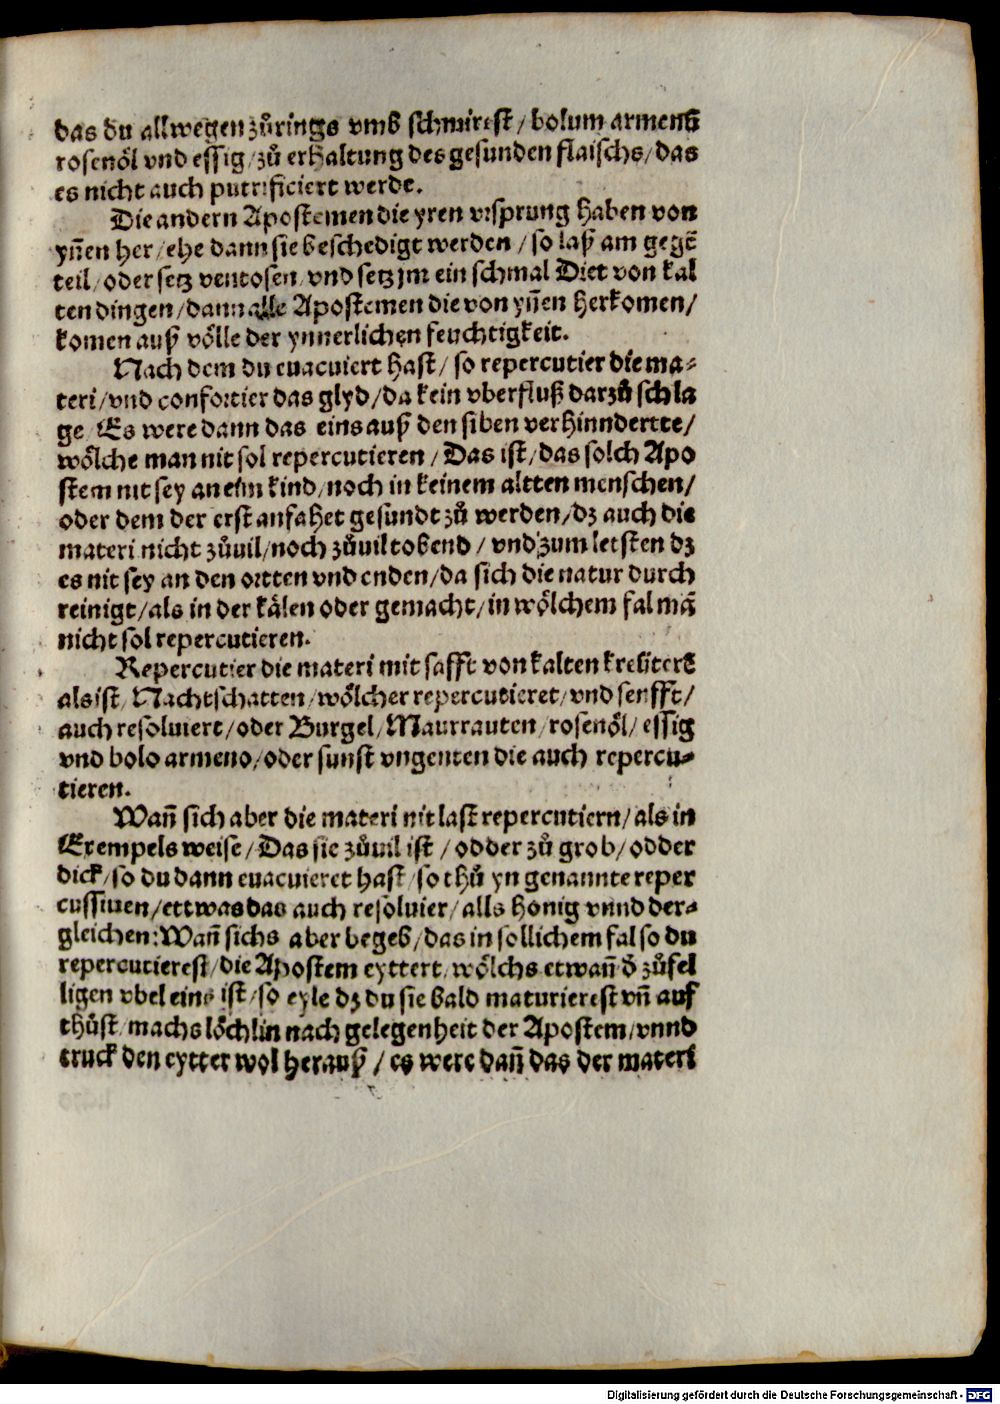 das du allwegen zůrings vmb schmirest / bolum armenū
rosenöl vnd essig / zů erhaltung des gesunden flaischs / das
es nicht auch putrificiert werde.
Die andern Apostemen die yren vrsprung haben von
yñen her / ehe dann sie beschedigt werden / so laß am gegē
teil / oder setz ventosen / vnd setz jm ein schmal Diet von kal
ten dingen / dann alle Apostemen die von yñen herkomen /
komen auß völle der ynnerlichen feuchtigkeit.
Nach dem du euacuiert hast / so repercutier die ma-
teri / vnd confortier das glyd / da kein vberfluß darzů schla
ge / Es were dann das eins auß den siben verhinndertte /
wölche man nit sol repercutieren / Das ist / das solch Apo
stem nit sey an eim kind / noch in keinem altten menschen /
oder dem der erst anfahet gesundt zů werden / dz auch die
materi nicht zůuil / noch zůuil tobend / vnd zum letsten dz
es nit sey an den ortten vnd enden / da sich die natur durch
reinigt / als in der kälen oder gemacht / in wölchem fal mā
nicht sol repercutieren.
Repercutier die materi mit safft von kalten kreüterē
als ist / Nachtschatten / wölcher repercutieret / vnd senfft /
auch resoluiert / oder Burgel / Maurrauten / rosenöl / essig
vnd bolo armeno / oder sunst vngenten die auch repercu-
tieren.
Wañ sich aber die materi nit last repercutiern / als in
Exempels weise / Das sie zůuil ist / odder zů grob / odder
dick / so du dann euacuieret hast / so thů yn genannte reper
cussiuen / ettwas das auch resoluier / alls honig vnnd der-
gleichen: Wañ sichs aber begeb / das in sollichem fal so du
repercutierest / die Apostem eyttert / wölchs etwañ d̄ zůfel
ligen vbel eins ist / so eyle dz du sie bald maturierest vñ auf
thůst / machs löchlin nach gelegenheit der Apostem / vnnd
truck den eytter wol herauß / es were dañ das der materi
Digitalisierung gefördert durch die Deutsche Forschungsgemeinschaft - DFG